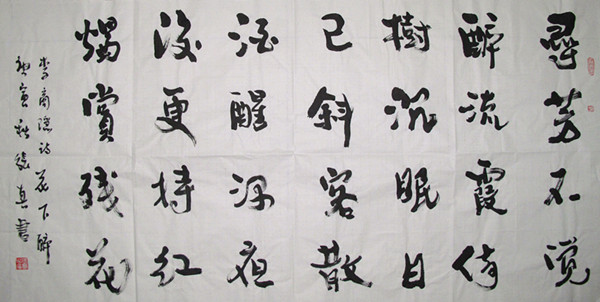 尋芳不覺
醉流霞倚
樹沉眠日
已斜客散
酒醒深夜
後更持紅
燭賞殘花
李商隱詩花下醉
書